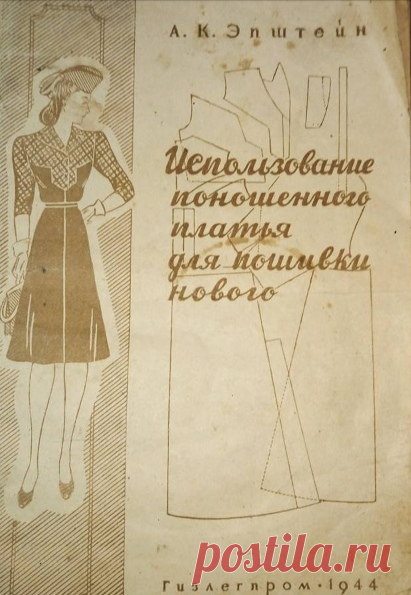 А. К. Эпштейн
Использование
поношенного
платья
для пошивки
нового
postila.ru
Гизлегпром • 1944